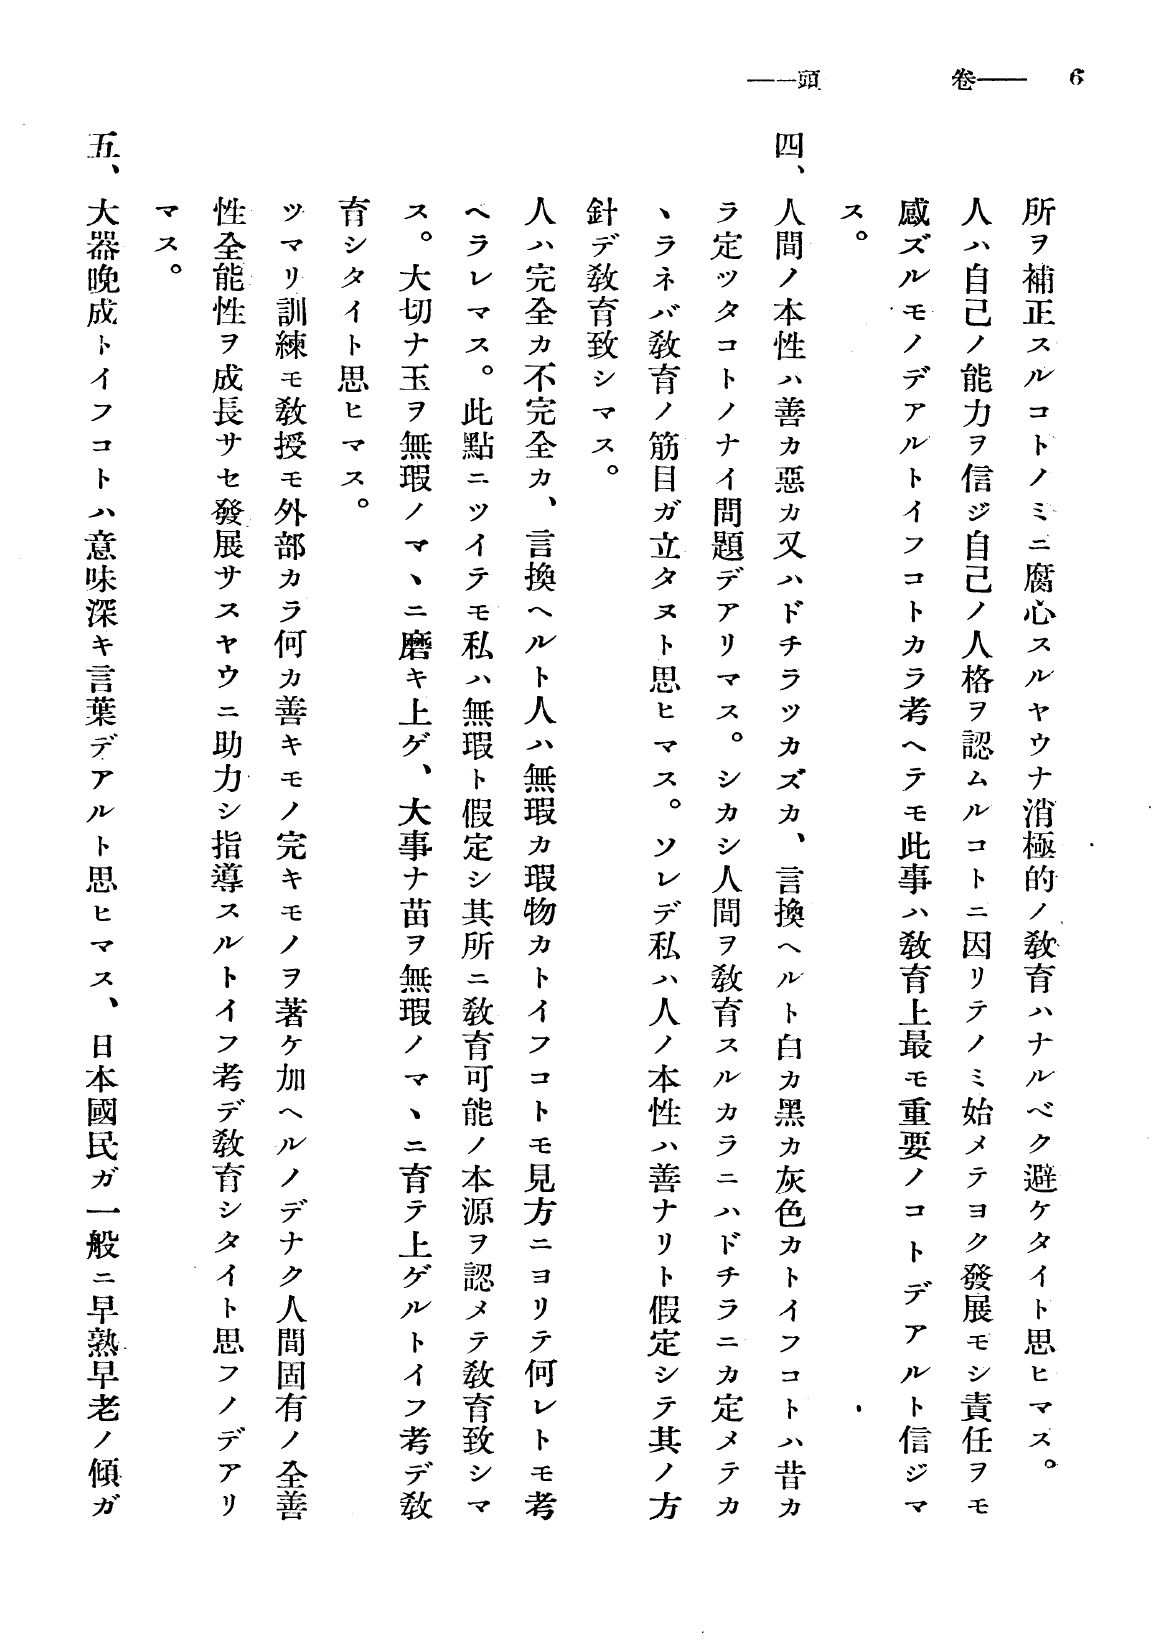 6 ——卷頭——
所ヲ補正スルコトノミニ腐心スルヤウナ消極的ノ教育ハナルベク避ケタイト思ヒマス。
人ハ自己ノ能力ヲ信ジ自己ノ人格ヲ認ムルコトニ因リテノミ始メテヨク發展モシ責任ヲモ
感ズルモノデアルトイフコトカラ考ヘテモ此事ハ教育上最モ重要ノコトデアルト信ジマ
ス。
四、人間ノ本性ハ善カ惡カ又ハドチラツカズカ、言換ヘルト白カ黑カ灰色カトイフコトハ昔カ
ラ定ツタコトノナイ問題デアリマス。シカシ人間ヲ教育スルカラニハドチラニカ定メテカ
ヽラネバ教育ノ筋目ガ立タヌト思ヒマス。ソレデ私ハ人ノ本性ハ善ナリト假定シテ其ノ方
針デ教育致シマス。
人ハ完全カ不完全カ、言換ヘルト人ハ無瑕カ瑕物カトイフコトモ見方ニヨリテ何レトモ考
ヘラレマス。此點ニツイテモ私ハ無瑕ト假定シ其所ニ教育可能ノ本源ヲ認メテ教育致シマ
ス。大切ナ玉ヲ無瑕ノマヽニ磨キ上ゲ、大事ナ苗ヲ無瑕ノマヽニ育テ上ゲルトイフ考デ教
育シタイト思ヒマス。
ツマリ訓練モ教授モ外部カラ何カ善キモノ完キモノヲ著ケ加ヘルノデナク人間固有ノ全善
性全能性ヲ成長サセ發展サスヤウニ助力シ指導スルトイフ考デ教育シタイト思フノデアリ
マス。
五、大器晩成トイフコトハ意味深キ言葉デアルト思ヒマス、日本國民ガ一般ニ早熟早老ノ傾ガ